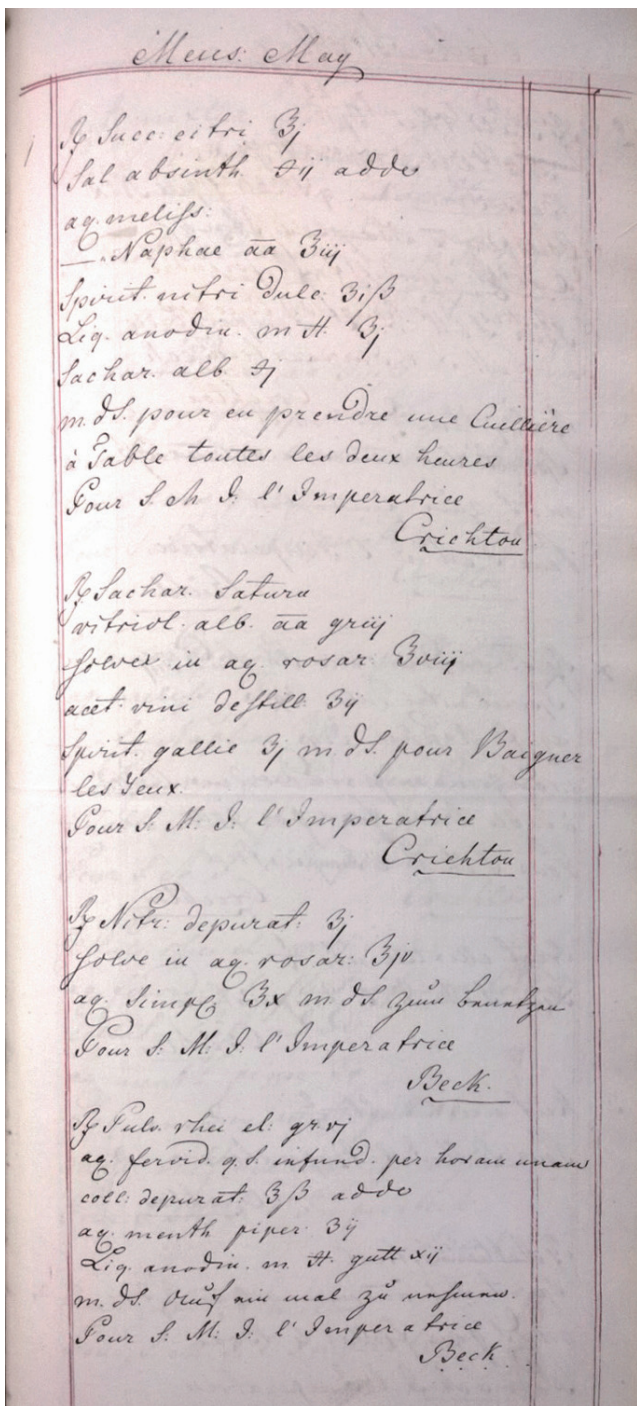 Mens: May
1
℞ Succ: citri ℥j
Sal absinth ʒij adde
aq. meliss:
—. Naphae āā ℥iij
Spirit. nitri dulc: ʒiß
Liq. anodin. m H. ʒj
Sachar. alb ʒj
m. dS. pour en prendre une Cuillière
à Table toutes les deux heures
Pour S. M. I: l'Imperatrice
Crichton
℞ Sachar. Saturn
vitriol. alb. āā griij
solve in aq. rosar: ℥viij
acet. vini destill: ʒij
Spirit. gallic ʒj m dS. pour Baigner
les Yeux.
Pour S: M: I: l'Imperatrice
Crichton
℞ Nitr: depurat: ʒj
solve in aq. rosar: ℥jv
aq. simpl ℥x m dS. zum benetzen
Pour S: M: I: l'Imperatrice
Beck.
℞ Pulv. rhei el: gr.vj
aq. fervid. q.S. infund. per horam unam
coll: depurat: ℥ß adde
aq. menth piper ʒij
Liq. anodin. m. H. gutt xij
m. dS. auf ein mal zu nehmen.
Pour S: M: I: l'Imperatrice
Beck.